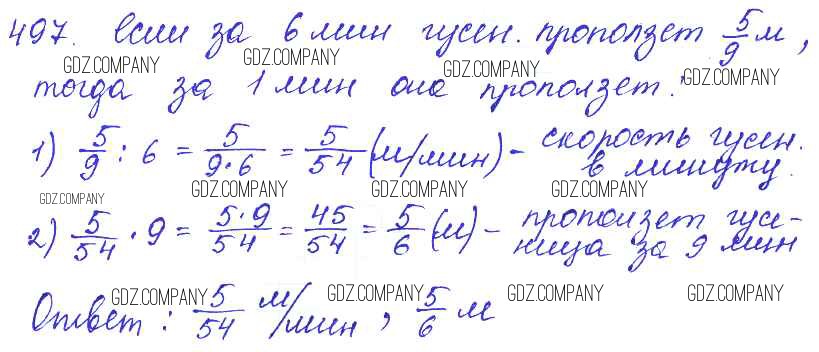 497. Если за 6 мин гусен. проползет 5/9 м,
GDZ.COMPANY GDZ.COMPANY GDZ.COMPANY GDZ.COMPANY
тогда за 1 мин она проползет:
1) 5/9 : 6 = 5/(9·6) = 5/54 (м/мин) - скорость гусен.
в минуту.
GDZ.COMPANY GDZ.COMPANY GDZ.COMPANY GDZ.COMPANY
2) 5/54 · 9 = (5·9)/54 = 45/54 = 5/6 (м) - проползет гусе-
ница за 9 мин
GDZ.COMPANY GDZ.COMPANY GDZ.COMPANY GDZ.COMPANY
Ответ: 5/54 м/мин, 5/6 м